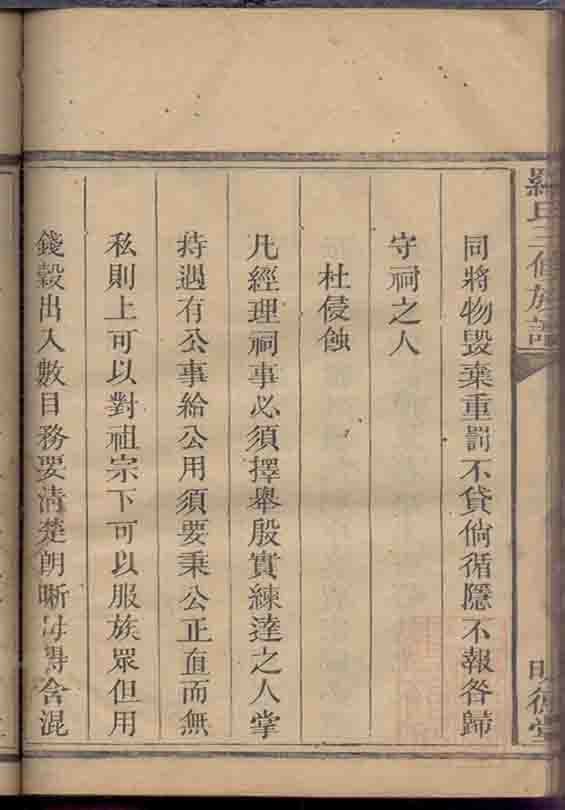 羅氏三修族譜
明德堂
同將物毀棄重罰不貸倘循隱不報咎歸
守祠之人
杜侵蝕
凡經理祠事必須擇舉殷實練達之人掌
持遇有公事給公用須要秉公正直而無
私則上可以對祖宗下可以服族眾但用
錢穀出入數目務要清楚朗晰毋得含混